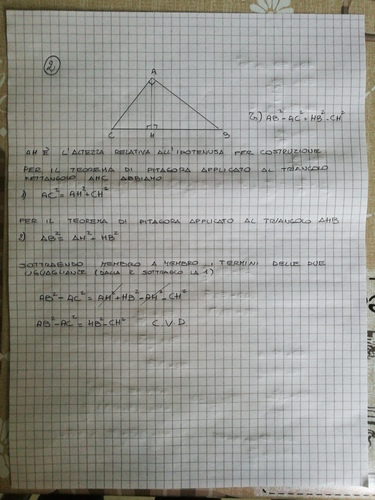 2
A
C H B
Th) AB² - AC² = HB² - CH²
AH È L'ALTEZZA RELATIVA ALL'IPOTENUSA PER COSTRUZIONE
PER IL TEOREMA DI PITAGORA APPLICATO AL TRIANGOLO
RETTANGOLO AHC ABBIAMO
1) AC² = AH² + CH²
PER IL TEOREMA DI PITAGORA APPLICATO AL TRIANGOLO AHB
2) AB² = AH² + HB²
SOTTRAENDO MEMBRO A MEMBRO I TERMINI DELLE DUE
UGUAGLIANZE (DALLA 2 SOTTRAGGO LA 1)
AB² - AC² = AH² + HB² - AH² - CH²
AB² - AC² = HB² - CH² C.V.D.